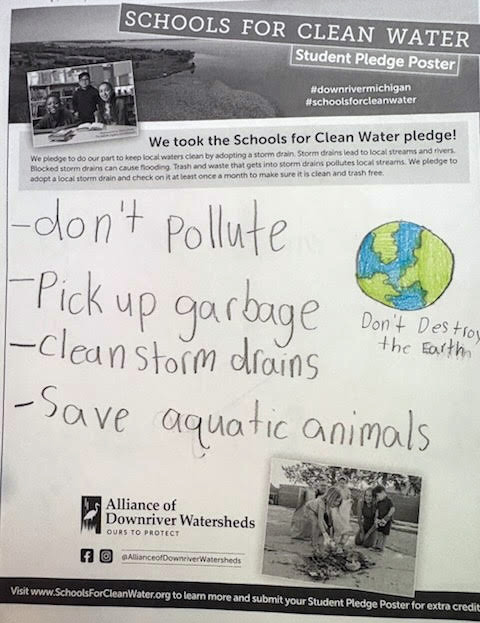 SCHOOLS FOR CLEAN WATER
Student Pledge Poster
#downrivermichigan
#schoolsforcleanwater
We took the Schools for Clean Water pledge!
We pledge to do our part to keep local waters clean by adopting a storm drain. Storm drains lead to local streams and rivers.
Blocked storm drains can cause flooding. Trash and waste that gets into storm drains pollutes local streams. We pledge to
adopt a local storm drain and check on it at least once a month to make sure it is clean and trash free.
-don't pollute
-Pick up garbage
-clean storm drains
-Save aquatic animals
Don't Destroy
the Earth
Alliance of
Downriver Watersheds
OURS TO PROTECT
@AllianceofDownriverWatersheds
Visit www.SchoolsForCleanWater.org to learn more and submit your Student Pledge Poster for extra credit